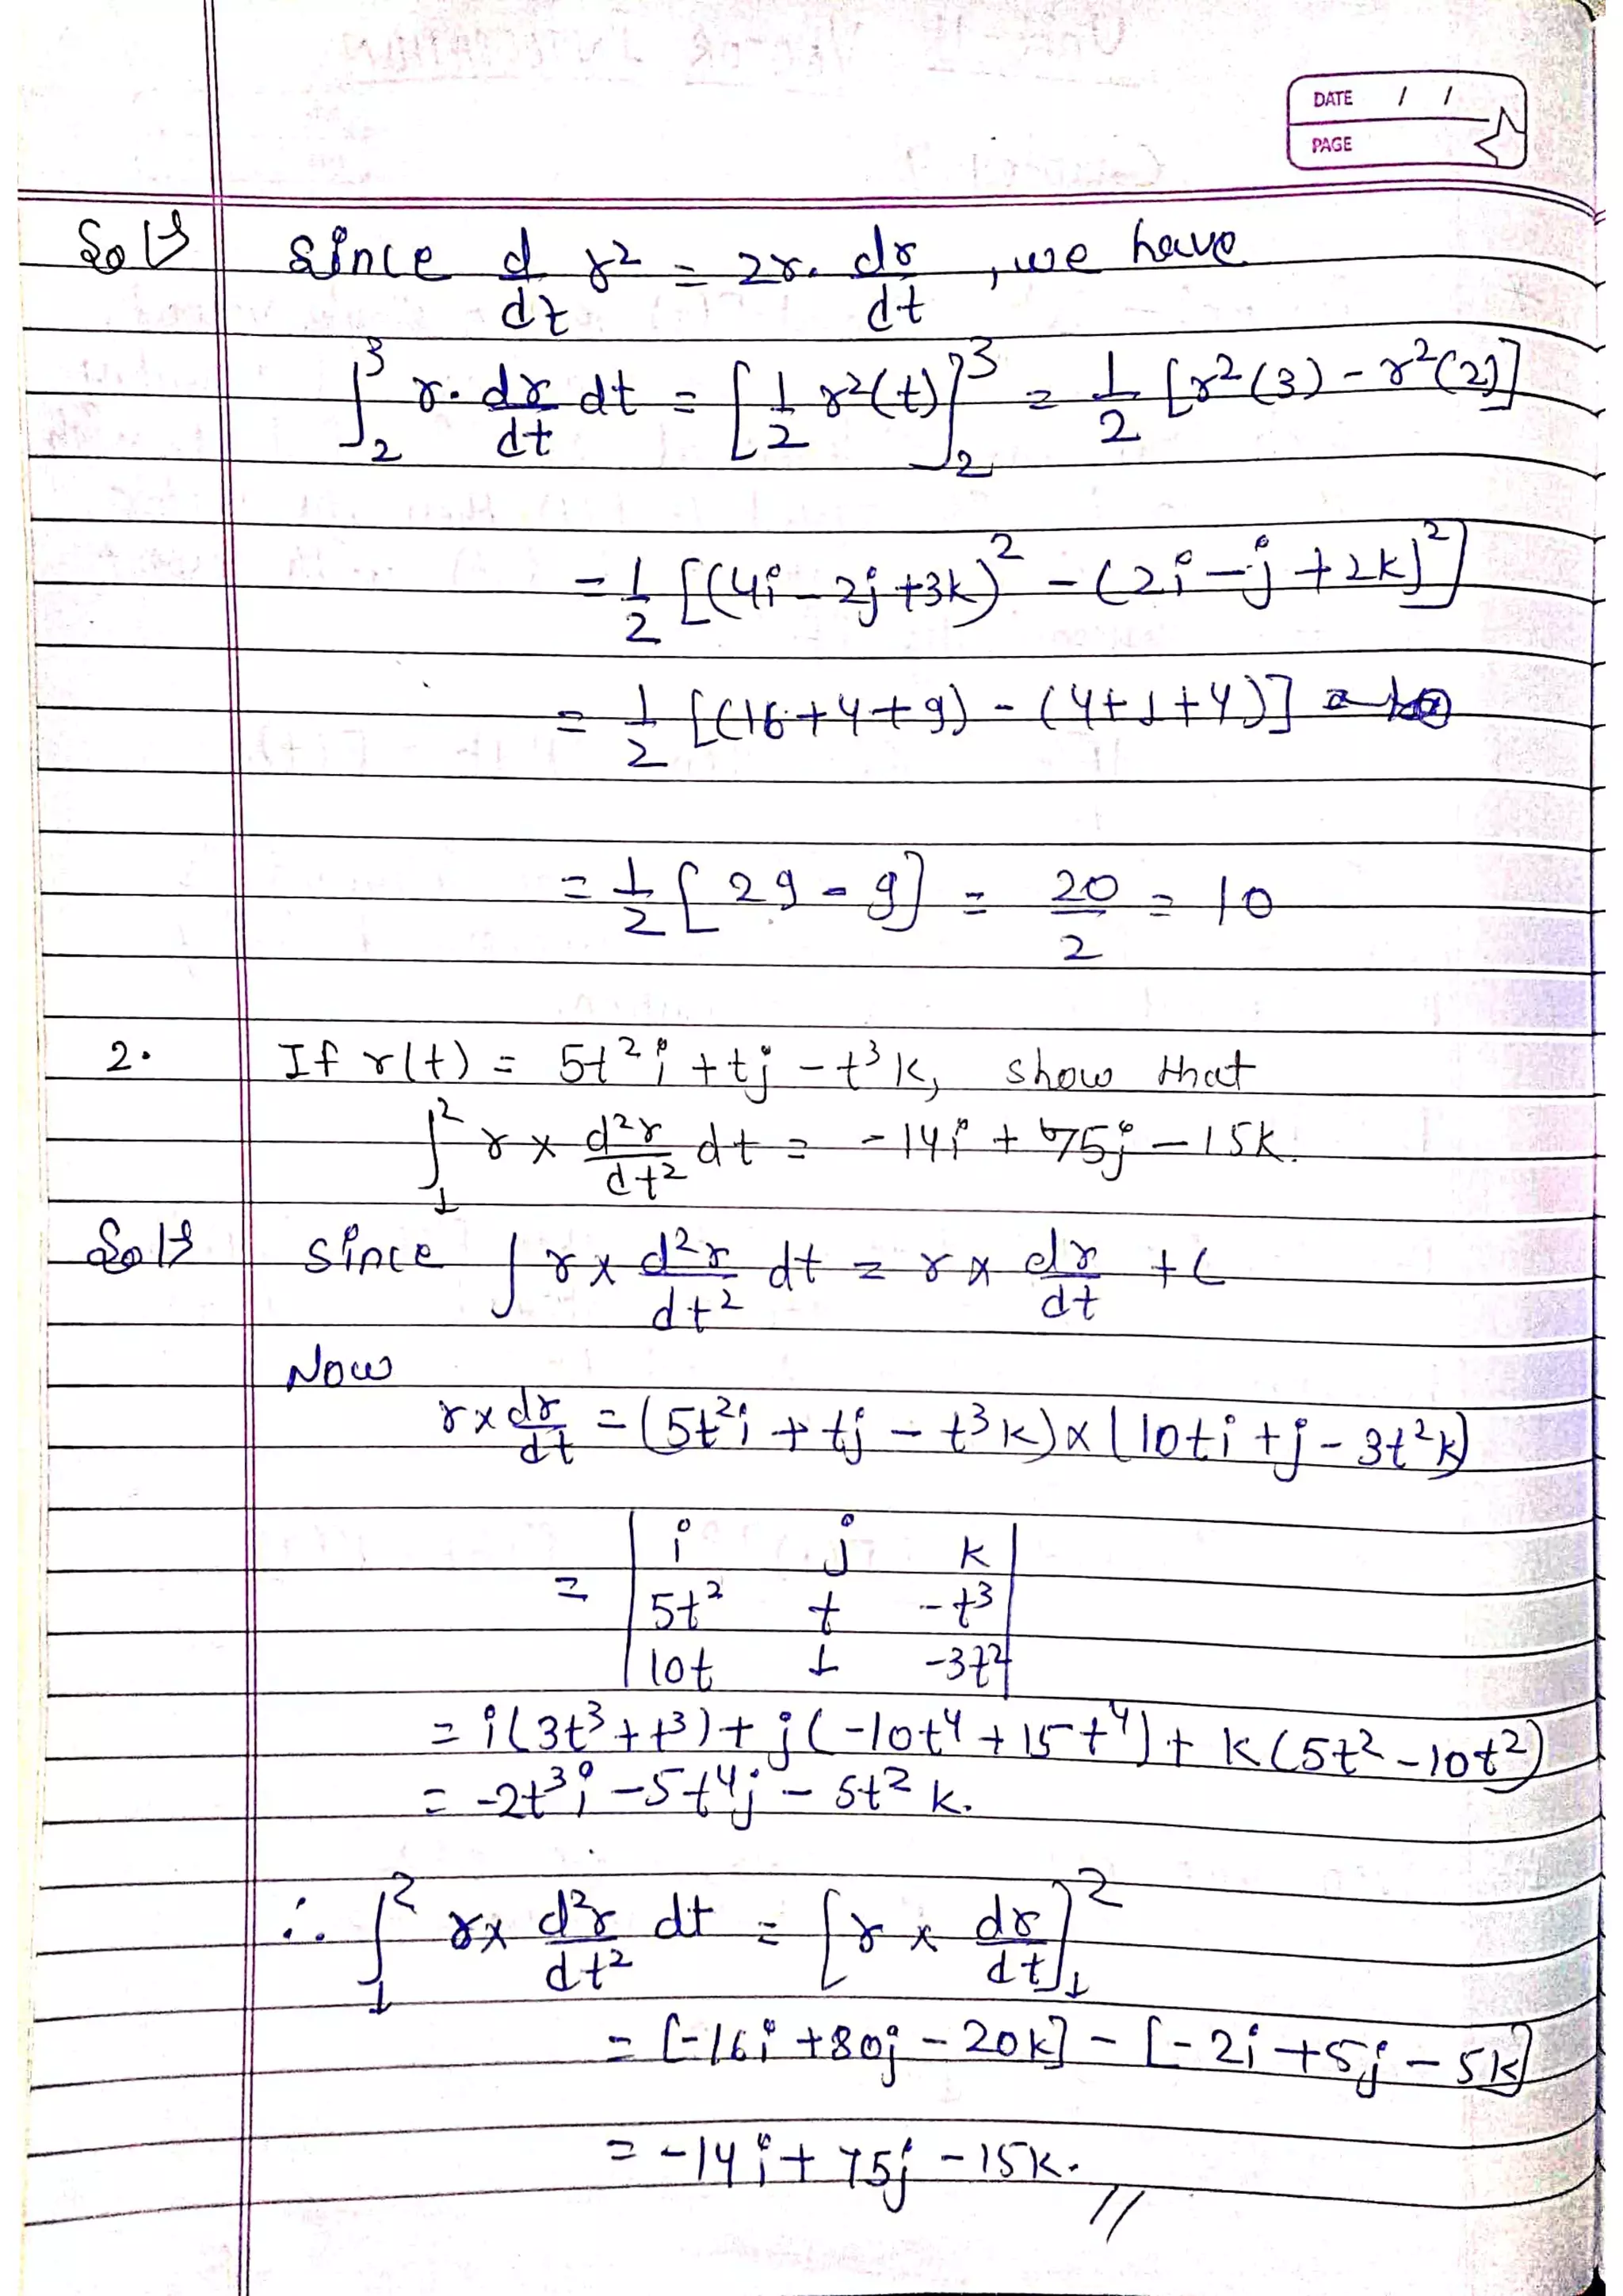 DATE / /
PAGE
Solⁿ since d/dt r² = 2r. dr/dt , we have
∫₂³ r. dr/dt dt = [1/2 r²(t)]₂³ = 1/2 [r²(3) - r²(2)]
= 1/2 [(4i - 2j + 3k)² - (2i - j + 2k)²]
= 1/2 [(16+4+9) - (4+1+4)]
= 1/2 [29 - 9] = 20/2 = 10
2. If r(t) = 5t²i + tj - t³k, show that
∫₁² r × d²r/dt² dt = -14i + 75j - 15k.
Solⁿ since ∫ r × d²r/dt² dt = r × dr/dt + C
Now
r × dr/dt = (5t²i + tj - t³k) × (10ti + j - 3t²k)
= | i j k |
| 5t² t -t³ |
| 10t 1 -3t² |
= i(3t³ + t³) + j(-10t⁴ + 15t⁴) + k(5t² - 10t²)
= -2t³i - 5t⁴j - 5t²k.
∴ ∫₁² r × d²r/dt² dt = [r × dr/dt]₁²
= [-16i + 80j - 20k] - [-2i + 5j - 5k]
= -14i + 75j - 15k. //